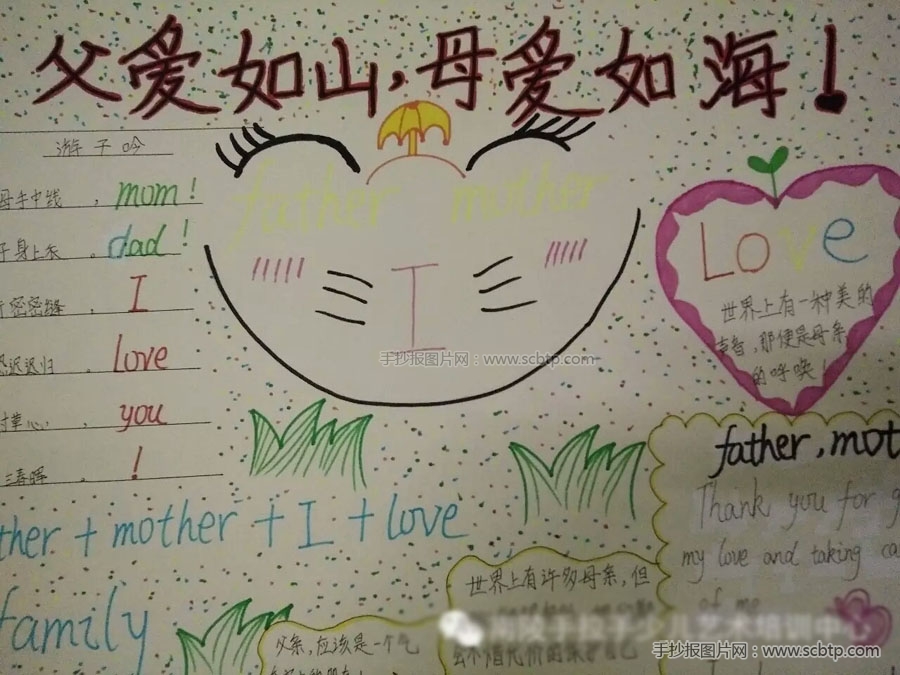 父爱如山，母爱如海！
游子吟
母手中线，mom!
子身上衣。dad!
行密密缝，I
恐迟迟归。love
寸草心，you
三春晖。!
father mother
I
Love
世界上有一种美的
声音，那便是母亲
的呼唤！
手抄报图片网：www.scbtp.com
ther + mother + I + love
family
father, mot
Thank you for g
my love and taking ca
of me
世界上有许多母亲，但
会不惜代价的保护自己
父亲，应该是一个气
手抄报图片网：www.scbtp.com